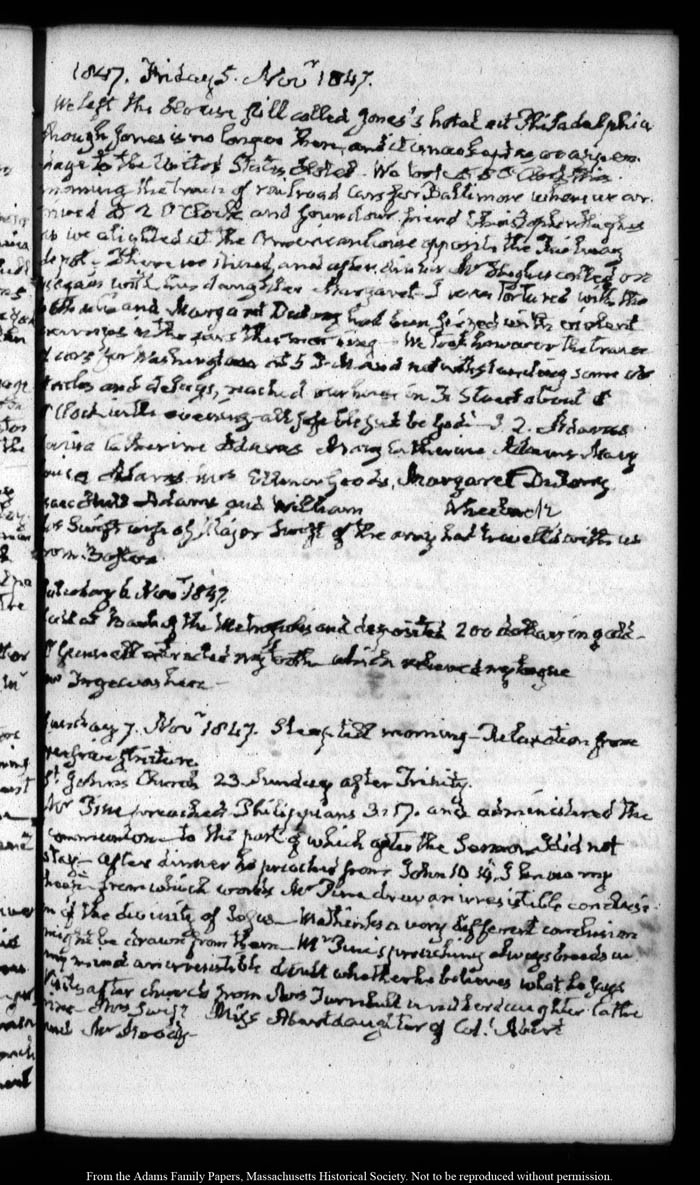 1847. Friday 5. Novr 1847.
We left the House still called Jones's hotel at Philadelphia
though Jones is no longer there, and it is now kept as an appen
dage to the United States Hotel. We took at 8 O'Clock this
morning the train of railroad Cars for Baltimore where we ar
rived at 2 O'Clock and found our friend Christopher Hughes
as we alighted at the American house opposite the Railway
depot. There we dined, and after dinner Mr Hughes called on
us again with his daughter Margaret. I was tortured with the
and Margaret Dulany had been seized with a violent
in the cars this morning. We took however the train
of cars for Washington at 5 P.M. and notwithstanding some ob
stacles and delays, reached our house in F. Street about 8
O'Clock in the evening all safe blessed be God. J. Q. Adams
Louisa Catherine Adams Mary Catherine Adams, Mary
Louisa Adams Mrs Ellenor Goods, Margaret Dulany
Isaac Hull Adams and William Wheelock
Mrs Swift wife of Major Swift of the army had travelled with us
from Boston
Saturday 6 Novr 1847.
Call at Bank of the Metropolis and deposited 200 dollars in gold—
Gunnell extracted my tooth which relieved my tongue
Mr Inge was here—
Sunday 7. Novr 1847. Sleep till morning—Relaxation from
stricture
St Johns Church 23 Sunday after Trinity.
Mr Pyne preached Philippians 3:17. and administered the
communion to the part of which after the Sermon I did not
stay— after dinner he preached from John 10 14. I know my
sheep— from which words Mr Pyne drew an irresistible conclusi
on of the divinity of Jesus—Methinks a very different conclusion
might be drawn from them—Mr Pyne's preaching always breeds in
my mind an irresistible doubt whether he believes what he says
Visits after church from Mrs Turnbull and her daughter Cathe
rine—Mrs Swift Miss Abert daughter of Col. Abert
and Mr Moody—
From the Adams Family Papers, Massachusetts Historical Society. Not to be reproduced without permission.